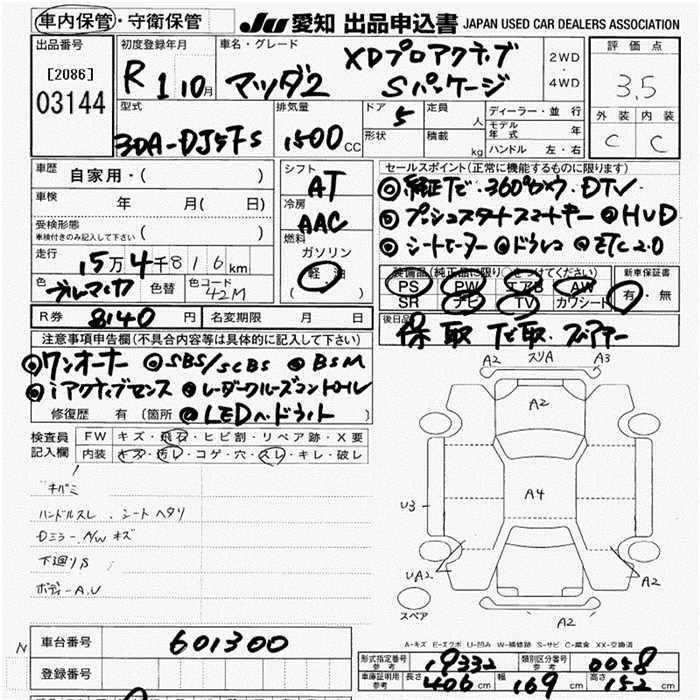 車内保管・守衛保管 JU 愛知 出品申込書 JAPAN USED CAR DEALERS ASSOCIATION
出品番号 [2086] 03144
初度登録年月 R 1 10月
車名・グレード マツダ2 XDプロアクティブ Sパッケージ
2WD・4WD
評価点 3.5
外装 内装
C C
型式 3DA-DJ5FS
排気量 1500CC
ドア 5 定員 人
形状 積載 kg
ディーラー・並行
モデル年式 年
ハンドル 左・右
車歴 自家用・( )
車検 年 月( 日)
受検形態 車検付きのみ記入して下さい ( )
走行 15万4千816km
色 ブルーマイカ 色替 色コード 42M
シフト AT
冷房 AAC
燃料 ガソリン 軽油 ( )
セールスポイント(正常に機能するものに限ります)
◎純正ナビ・360°カメラ・DTV
◎プッシュスタートスマートキー ◎HUD
◎シートヒーター ◎ドラレコ ◎ETC2.0
装備品(純正品に限り○をつけてください) 新車保証書
PS PW エアB AW 有・無
SR ナビ TV カワシート
R券 8140円 名変期限 月 日
後日品 保 取 ナビ取 スペアキー
注意事項申告欄(不具合内容等は具体的に記入して下さい)
◎ワンオーナー ◎SBS/SCBS ◎BSM
◎iアクティブセンス ◎レーダークルーズコントロール
修復歴 有 (箇所 ◎LEDヘッドライト
検査員記入欄 FW キズ・飛石・ヒビ割・リペア跡・X要
内装 キズ・汚レ・コゲ・穴・スレ・キレ・破レ
キバミ
ハンドルスレ.シートヘタリ
Dミラー.N/W キズ
下廻りS
ボディーA.U
A2 スリA A3
A2
A4
U3
UA2
A2
A2
スペア
A-キズ E-エクボ U-凹み W-補修跡 S-サビ C-腐食 XX-交換済
N 車台番号 601300
登録番号
形式指定番号 参考 19332 類別区分番号 参考 0058
車庫証明用 参考 長さ 406cm 幅 169cm 高さ 152cm